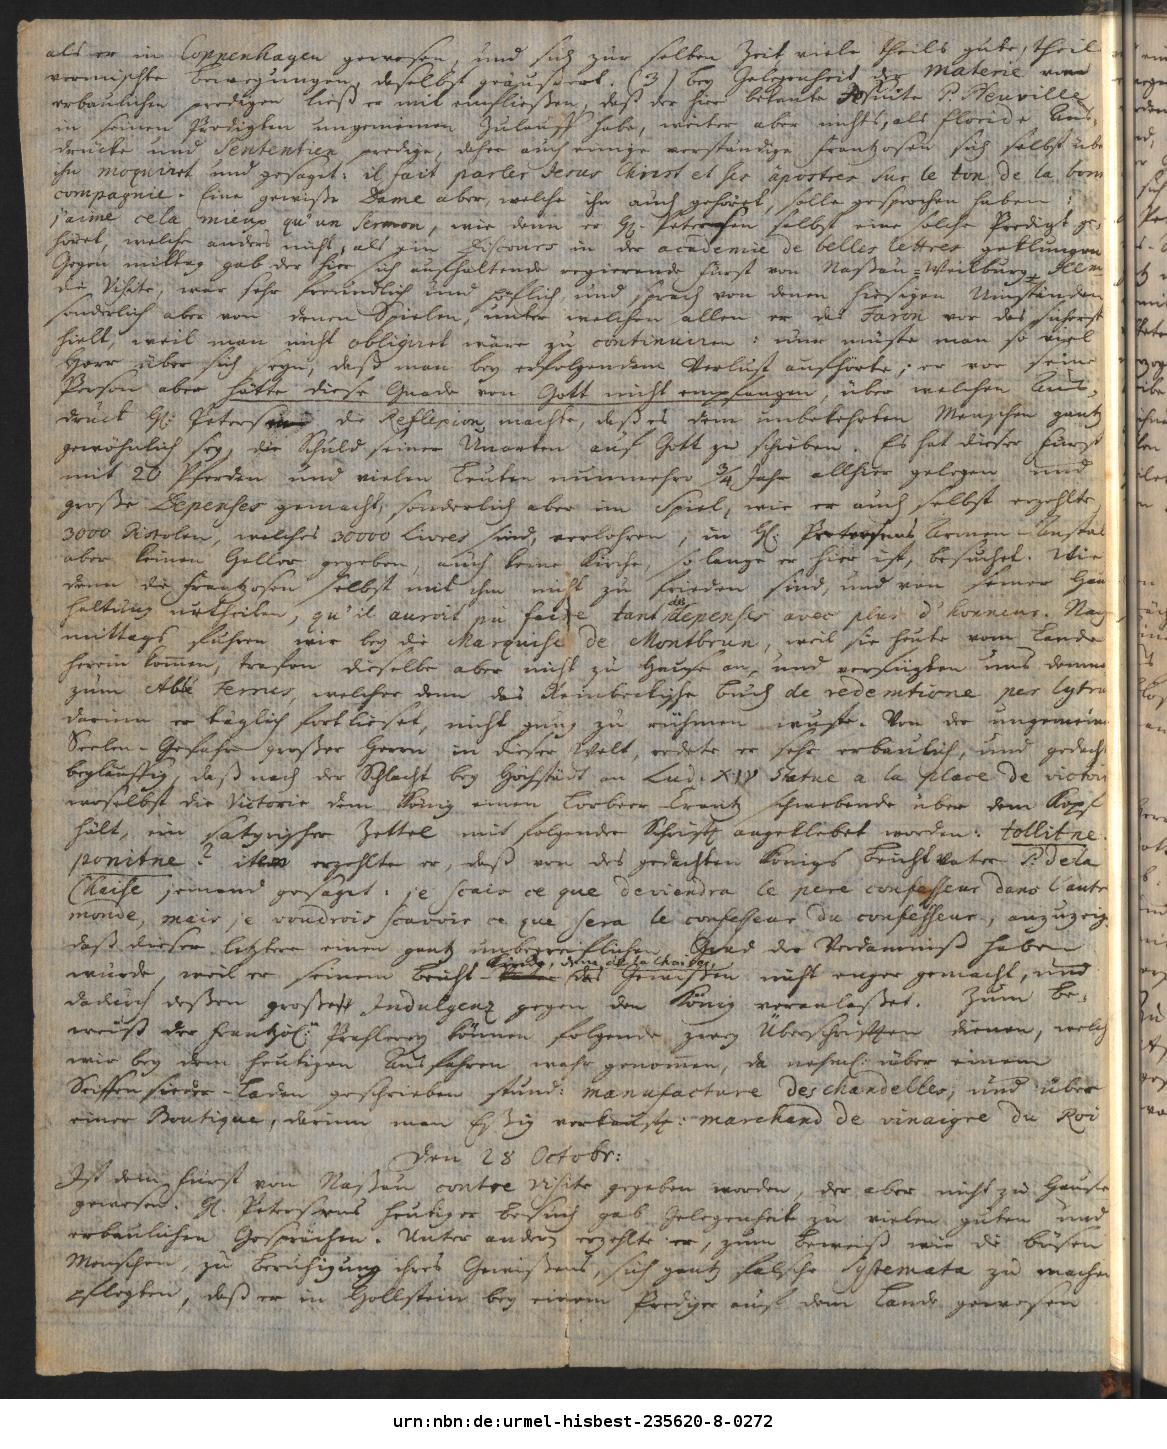 als er in Coppenhagen gewesen, und sich zur selben Zeit viele theils gute, theils
vermischte Bewegungen daselbst geäussert. (3) bey Gelegenheit der Materie von
erbaulichen predigen ließ er mit einfließen, daß der hier bekante Jesuite P. Neuville
in seinen Predigten ungemeinen Zulauff habe, weiter aber nichts, als floride Aus-
drücke und Sententien predige, daher auch einige verständige Frantzosen sich selbst über
ihn moquiret und gesaget: il fait parler Jesus Christ et ses apostres sur le ton de la bonne
compagnie. Eine gewiße Dame aber, welche ihn auch gehöret, solle gesprochen haben:
j'aime cela mieux qu'un Sermon, wie denn er H. Petersen selbst eine solche Predigt ge-
höret, welche anders nicht, als ein Discours in der academie de belles lettres geklungen.
Gegen mittag gab der hier sich aufhaltende regierende Fürst von Naßau-Weilburg Ilem
die Visite, war sehr freundlich und höflich, und sprach von denen hiesigen Umständen
sonderlich aber von denen Spielen, unter welchen allen er das Faron vor das sicherste
hielt, weil man nicht obligiret wäre zu continuiren: nur müste man so viel
Herr über sich seyn, daß man bey erfolgendem Verlust aufhörte; er vor seine
Person aber hätte diese Gnade von Gott nicht empfangen, über welchen Aus-
druck H: Petersen die Reflexion machte, daß es dem unbekehrten Menschen gantz
gewöhnlich sey, die Schuld seiner Unarten auf Gott zu schieben. Es hat dieser Fürst
mit 20 Pferden und vielen Leuten nunmehro 3/4 Jahr allhier gelegen und
große Depenses gemacht, sonderlich aber im Spiel, wie er auch selbst erzehlte,
3000 Pistolen, welches 30000 Livres sind, verlohren, in H: Petersens Armen-Anstalt
aber keinen Heller gegeben, auch keine Kirche, so lange er hier ist, besuchet. Wie
denn die Frantzosen selbst mit ihm nicht zu frieden sind, und von seiner Haus-
haltung urtheilen, qu'il auroit pû faire tant de depenses avec plus d'honneur. Nach
mittags fuhren wir bey die Marquise de Montbrun, weil sie heute vom Lande
herein kommen, trafen dieselbe aber nicht zu Hause an, und verfügten uns demnach
zum Abbé Ternus, welcher denn das Reinbeckische Buch de redemtione per lytron
darinn er täglich fortlieset, nicht gnug zu rühmen wuste. Von der ungemeinen
Seelen-Gefahr großer Herrn in dieser Welt, redete er sehr erbaulich, und gedachte
beyläuffig, daß nach der Schlacht bey Höchstädt an Lud. XIV Statue a la place de victoire
woselbst die Victorie dem König einen Lorbeer-Crantz schwebende über dem Kopf
hält, ein satyrischer Zettel mit folgender Schrift angeklebet worden: tollitne
ponitne? item erzehlte er, daß von des gedachten Königs Beichtvater P. de la
Chaise jemand gesaget: je scais ce que deviendra le pere confesseur dans l'autre
monde, mais je voudrois scavoir ce que sera le confesseur du confesseur, anzuzeigen
daß dieser letztere einen gantz unbegreiflichen Grad der Verdamniß haben
würde, weil er seinem Beicht-Kinde, dem de la Chaise, das Gewißen nicht enger gemacht, und
dadurch deßen große Indulgenz gegen den König veranlaßet. Zum Be-
weiß der Frantzös: Prahlerey können folgende zwey Überschrifften dienen, welche
wir bey dem heutigen Ausfahren wahr genommen, da nehml: über einem
Seiffensieder-Laden geschrieben stund: manufacture des chandelles; und über
einer Boutique, darinn man Eßig verkaufft: marchand de vinaigre du Roi
Den 28 Octobr:
Ist dem Fürst von Naßau contre visite gegeben worden, der aber nicht zu Hause
gewesen. H. Petersens heutiger Besuch gab Gelegenheit zu vielen guten und
erbaulichen Gesprächen. Unter andern erzehlte er, zum Beweiß wie die bösen
Menschen, zu Beruhigung ihres Gewißens, sich gantz falsche Systemata zu machen
pflegten, daß er in Hollstein bey einem Prediger auf dem Lande gewesen
urn:nbn:de:urmel-hisbest-235620-8-0272